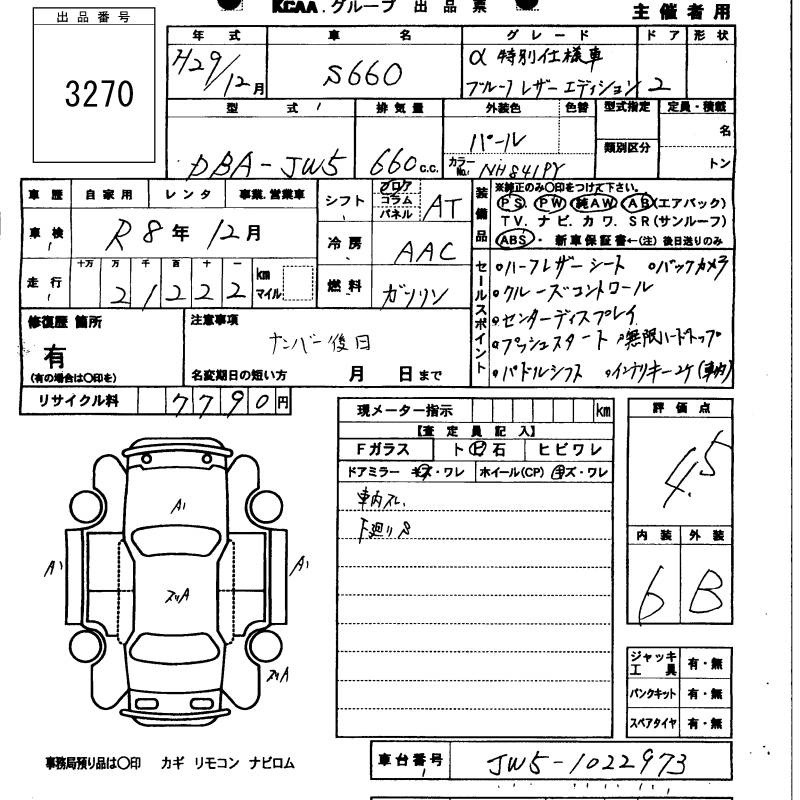 KCAA.グループ 出品票
主催者用
出品番号
3270
年式 車名 グレード ドア 形状
H29/12月 S660 α特別仕様車
ブルーノレザーエディション 2
型式 排気量 外装色 色替 型式指定 定員・積載
DBA-JW5 660c.c. パール 類別区分 名
カラーNo. NH841PY トン
車歴 自家用 レンタ 事業.営業車
車検 R8年12月
走行 十万 万 千 百 十 一
21222 km マイル
シフト フロア コラム パネル AT
冷房 AAC
燃料 ガソリン
装備品 ※純正のみ〇印をつけて下さい。
PS PW 純AW AB(エアバック)
TV. ナビ. カワ. SR(サンルーフ)
ABS・ 新車保証書←(注) 後日送りのみ
セールスポイント
ハーフレザーシート バックカメラ
クルーズコントロール
センターディスプレイ
プッシュスタート 無限ハードトップ
パドルシフト インテリキー2ケ(車内)
修復歴 箇所
有
(有の場合は〇印を)
注意事項
ナンバー後日
名変期日の短い方 月 日まで
リサイクル料 7790円
現メーター指示 km
【査定員記入】
Fガラス ト ヒ 石 ヒビワレ
ドアミラー キズ・ワレ ホイール(CP) キズ・ワレ
車内スレ.
下廻りS
評価点
4.5
内装 外装
6 B
A1
A1
A1
ズリA
ズリA
ジャッキ工具 有・無
パンクキット 有・無
スペアタイヤ 有・無
事務局預り品は〇印 カギ リモコン ナビロム
車台番号 JW5-1022973